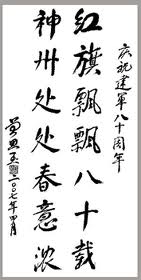 庆祝建军八十周年
红旗飘飘八十载
神州处处春意浓
二〇〇七年四月